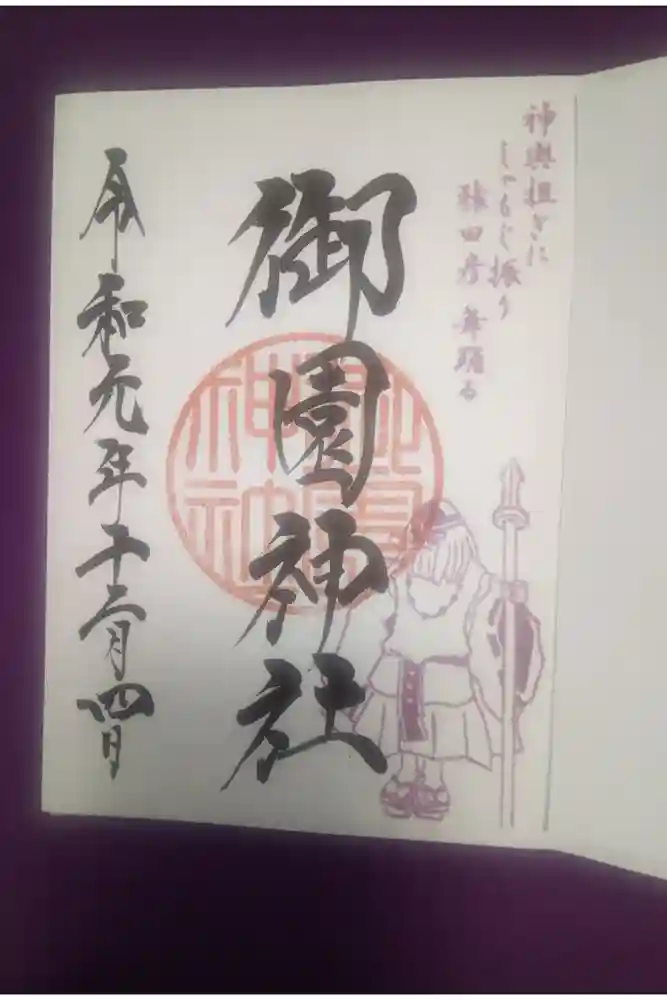 神輿担ぎに
しゃもじ振り
猿田彦 舞踊る
御園神社
令和元年十二月四日